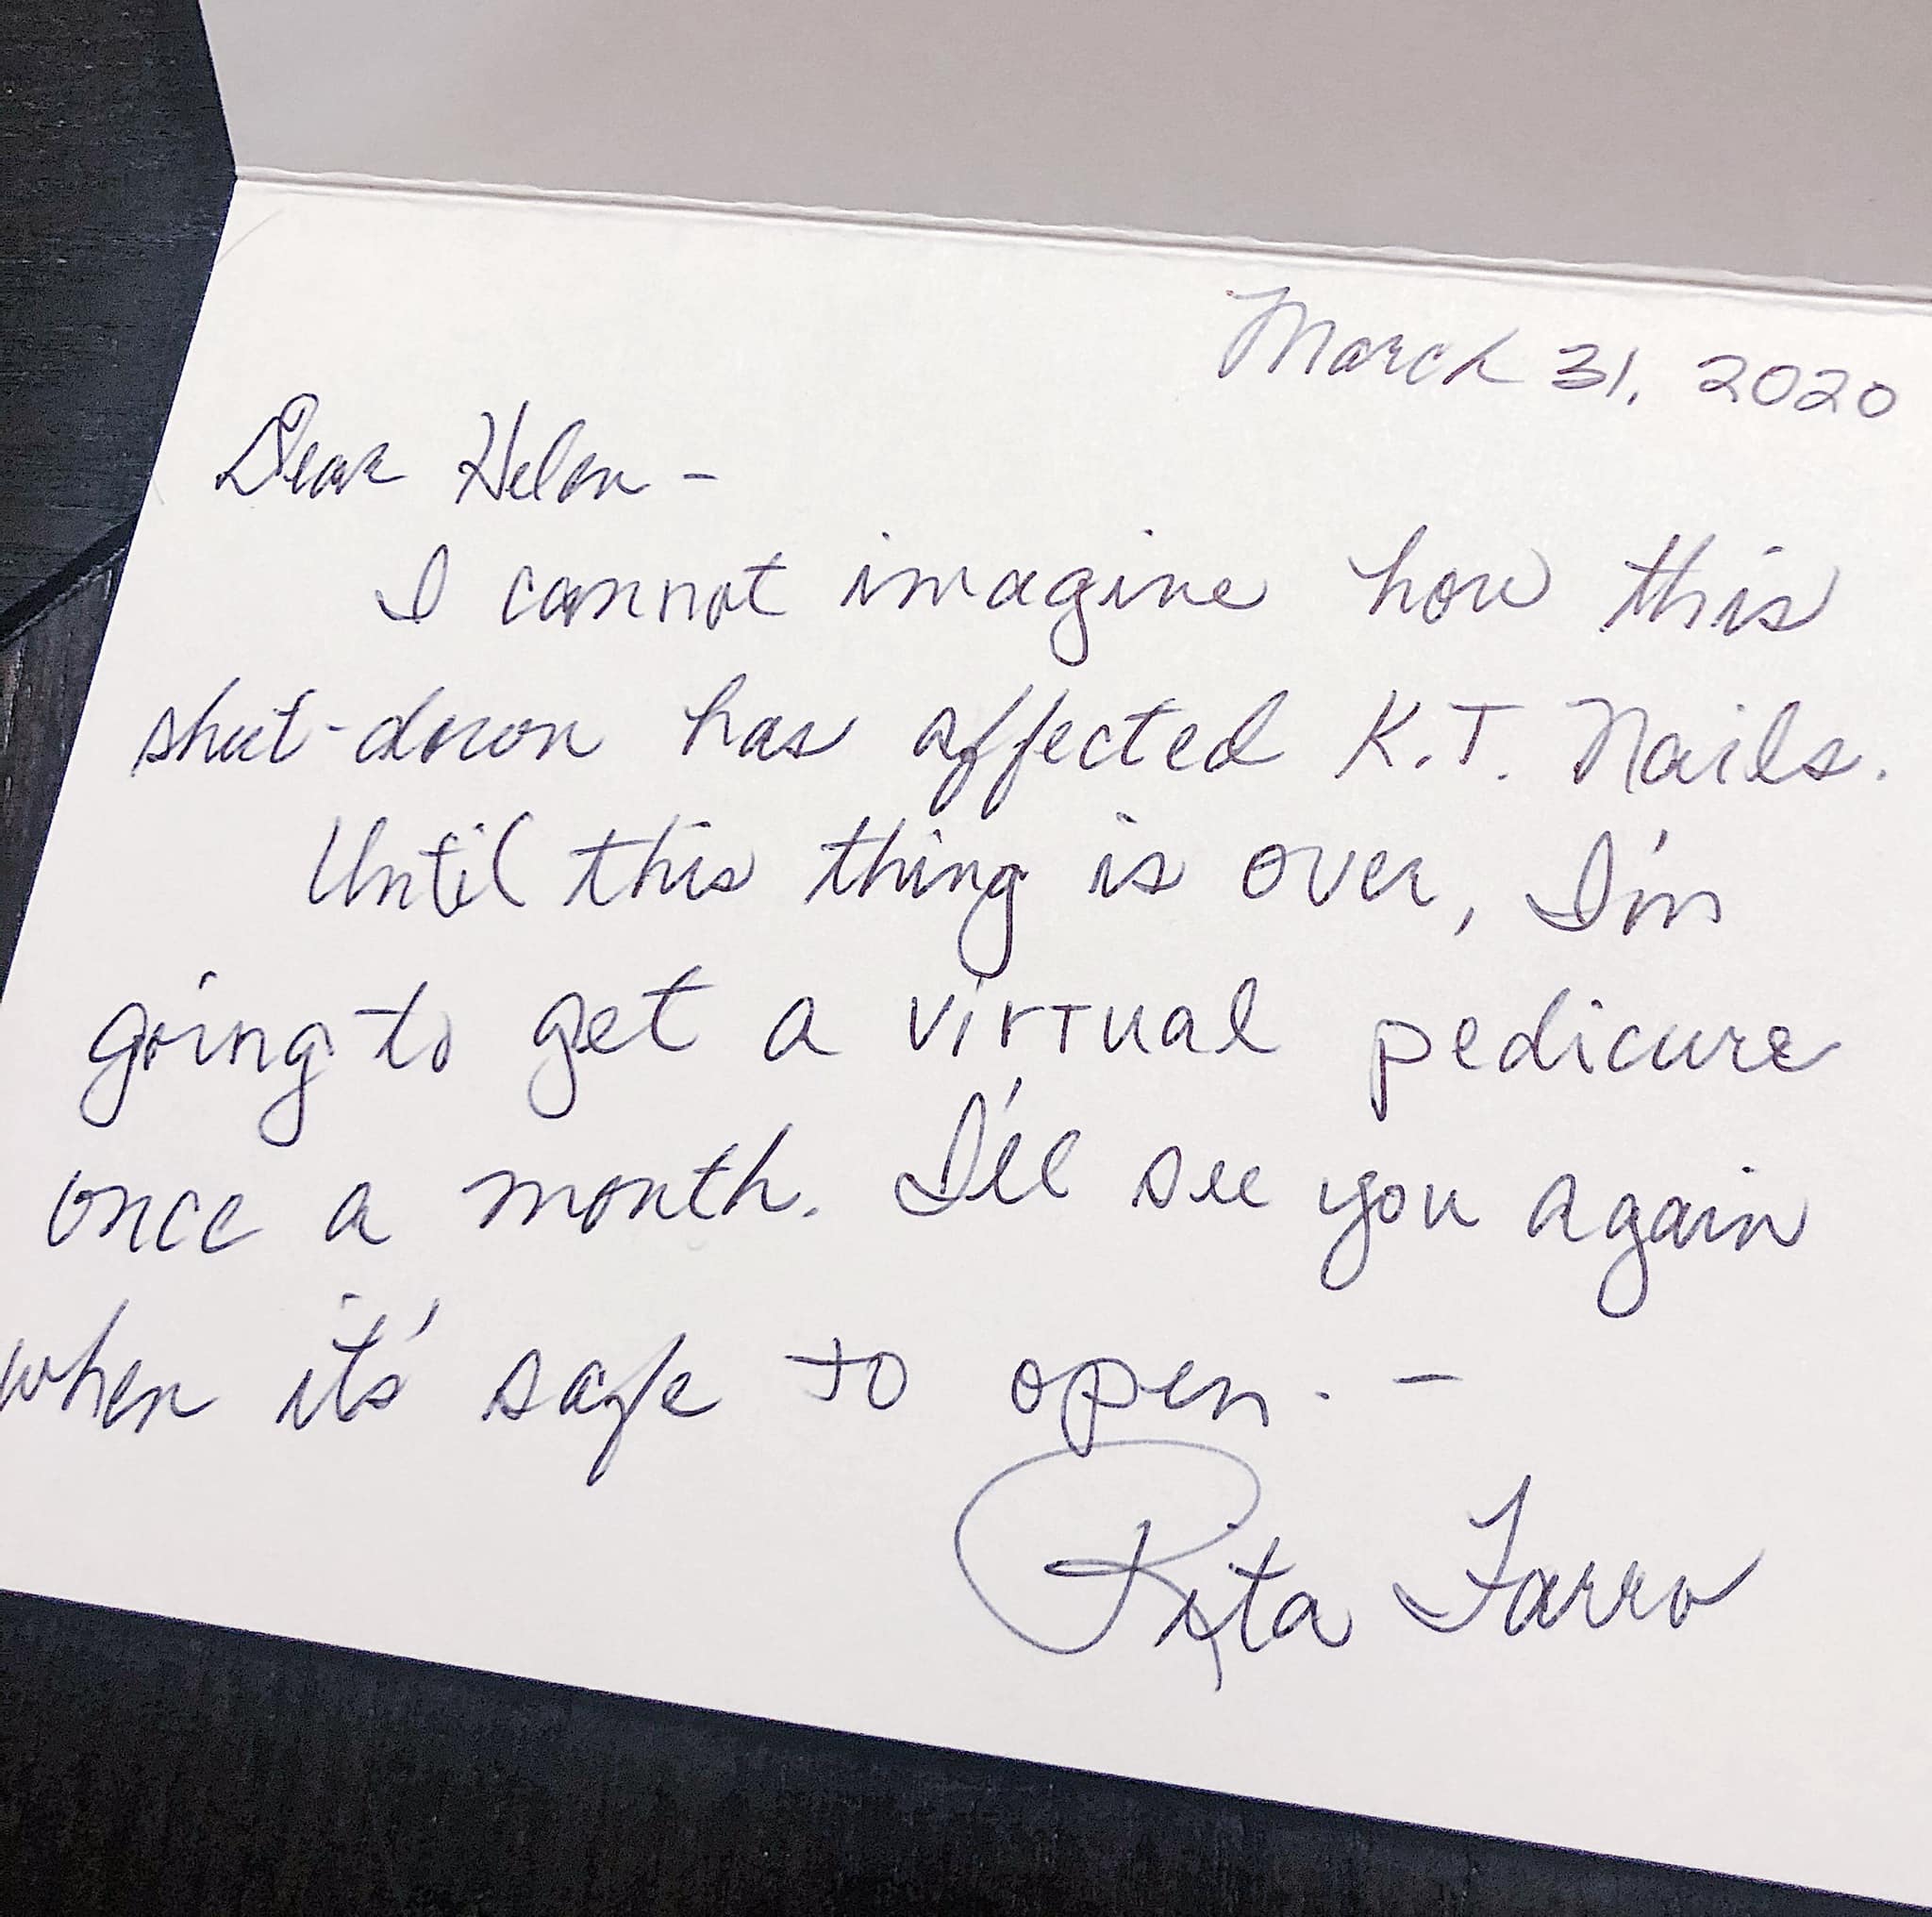 March 31, 2020
Dear Helen -
I cannot imagine how this
shut-down has affected K.T. Nails.
Until this thing is over, I'm
going to get a virtual pedicure
once a month. I'll see you again
when it's safe to open. -
Rita Farro